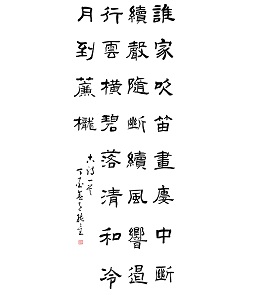 誰家吹笛畫廔中斷
續聲隨斷續風響遏
行雲橫碧落清和冷
月到簾櫳
古詩一首